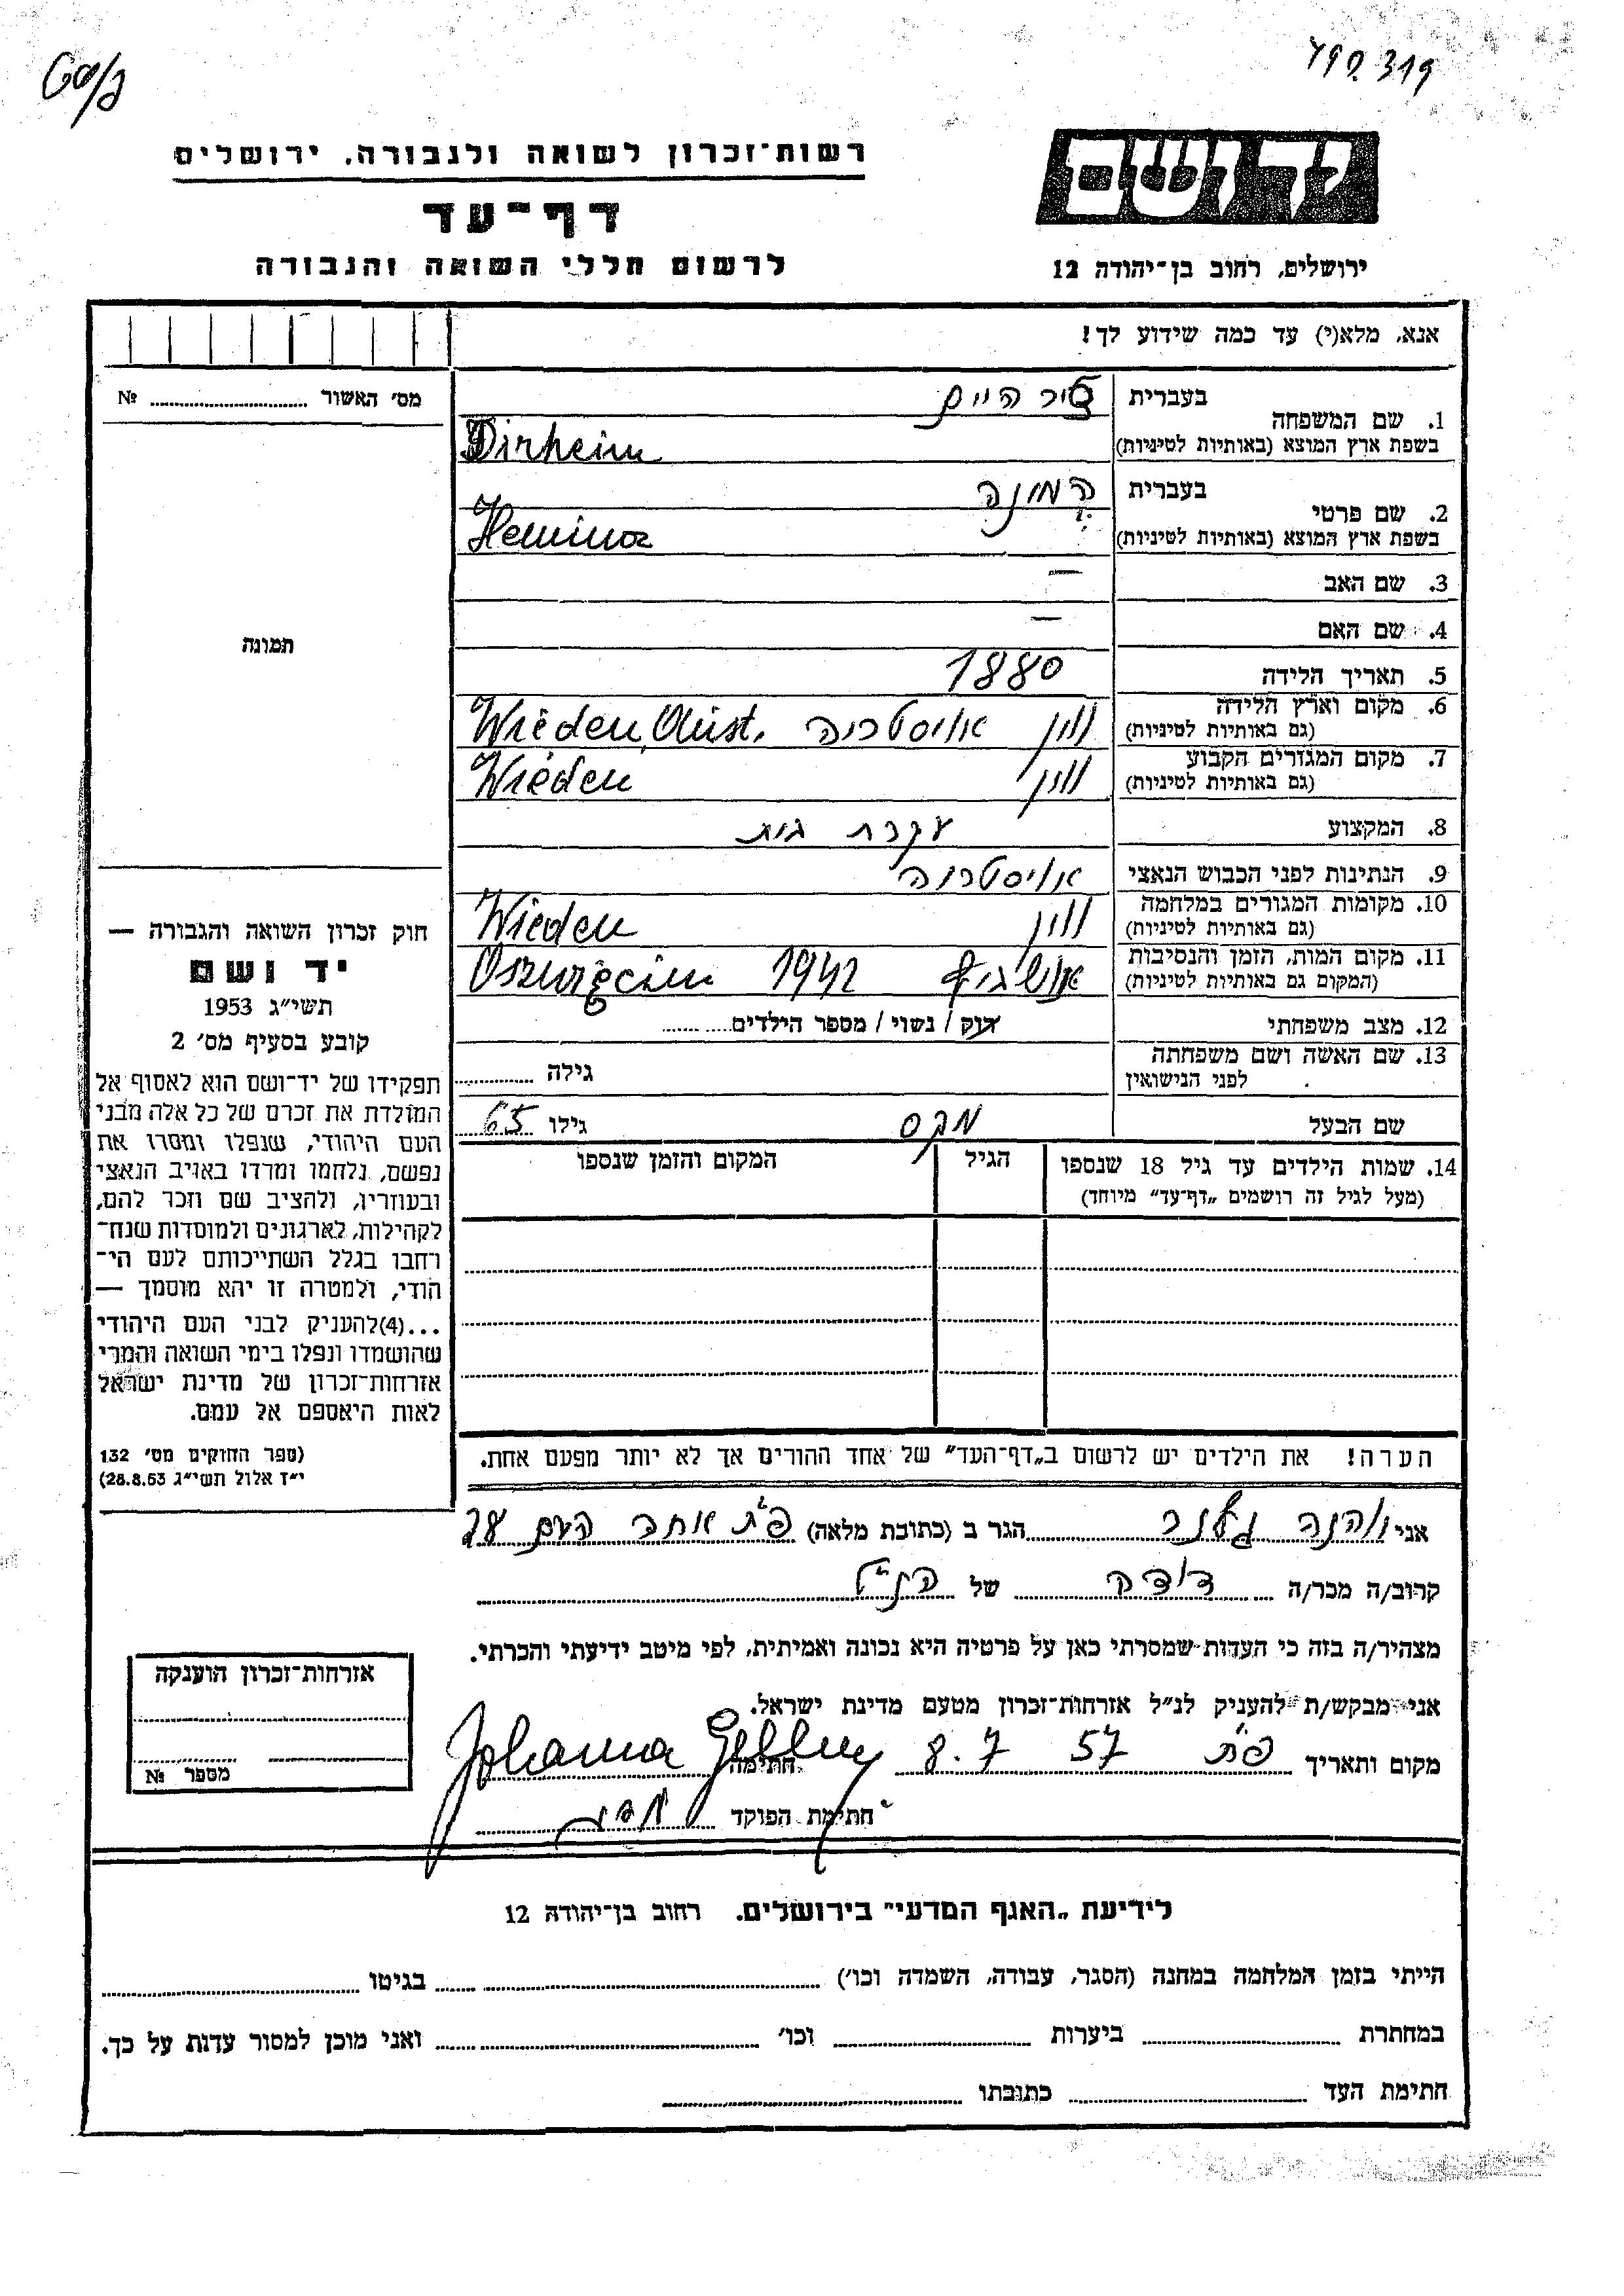 רשות־זכרון לשואה ולגבורה, ירושלים
דף־עד
לרשום חללי השואה והגבורה
יד ושם
ירושלים, רחוב בן־יהודה 12
אנא, מלא(י) עד כמה שידוע לך!
מס׳ האשור № 
תמונה
1. שם המשפחה
בעברית דירהיים
בשפת ארץ המוצא (באותיות לטיניות) Dirheim
2. שם פרטי
בעברית המינה
בשפת ארץ המוצא (באותיות לטיניות) Hemina
3. שם האב —
4. שם האם —
5. תאריך הלידה 1880
6. מקום וארץ הלידה
(גם באותיות לטיניות) ווין אויסטריה Wieden, Aust.
7. מקום המגורים הקבוע
(גם באותיות לטיניות) ווין Wieden
8. המקצוע עקרת בית
9. הנתינות לפני הכבוש הנאצי אויסטריה
10. מקומות המגורים במלחמה
(גם באותיות לטיניות) ווין Wieden
11. מקום המות, הזמן והנסיבות
(המקום גם באותיות לטיניות) אושביץ 1942 Oszwięcim
12. מצב משפחתי רווק / נשוי / מספר הילדים
13. שם האשה ושם משפחתה
לפני הנישואין גילה
שם הבעל מקס גילו 65
14. שמות הילדים עד גיל 18 שנספו
(מעל לגיל זה רושמים „דף־עד” מיוחד)
הגיל
המקום והזמן שנספו
חוק זכרון השואה והגבורה —
יד ושם
תשי״ג 1953
קובע בסעיף מס׳ 2
תפקידו של יד־ושם הוא לאסוף אל
המולדת את זכרם של כל אלה מבני
העם היהודי, שנפלו ומסרו את
נפשם, נלחמו ומרדו באויב הנאצי
ובעוזריו, ולהציב שם וזכר להם,
לקהילות, לארגונים ולמוסדות שנח־
רחבו בגלל השתייכותם לעם הי־
הודי, ולמטרה זו יהא מוסמך —
...(4)להעניק לבני העם היהודי
שהושמדו ונפלו בימי השואה והמרי
אזרחות־זכרון של מדינת ישראל
לאות היאספם אל עמם.
(ספר החוקים מס׳ 132
י״ז אלול תשי״ג 28.8.53)
הערה! את הילדים יש לרשום ב„דף־העד” של אחד ההורים אך לא יותר מפעם אחת.
אני יוהנה גלנר הגר ב (כתובת מלאה) פ״ת אחד העם
קרוב/ה מכר/ה דודה של הנ״ל
מצהיר/ה בזה כי העדות שמסרתי כאן על פרטיה היא נכונה ואמיתית, לפי מיטב ידיעתי והכרתי.
אני מבקש/ת להעניק לנ״ל אזרחות־זכרון מטעם מדינת ישראל.
מקום ותאריך פ״ת 8.7 57 חתימה Johanna
חתימת הפוקד
אזרחות־זכרון הוענקה
מספר №
לידיעת „האגף המדעי” בירושלים. רחוב בן־יהודה 12
הייתי בזמן המלחמה במחנה (הסגר, עבודה, השמדה וכו׳) בגיטו
במחתרת ביערות וכו׳ ואני מוכן למסור עדות על כך.
חתימת העד כתובתו